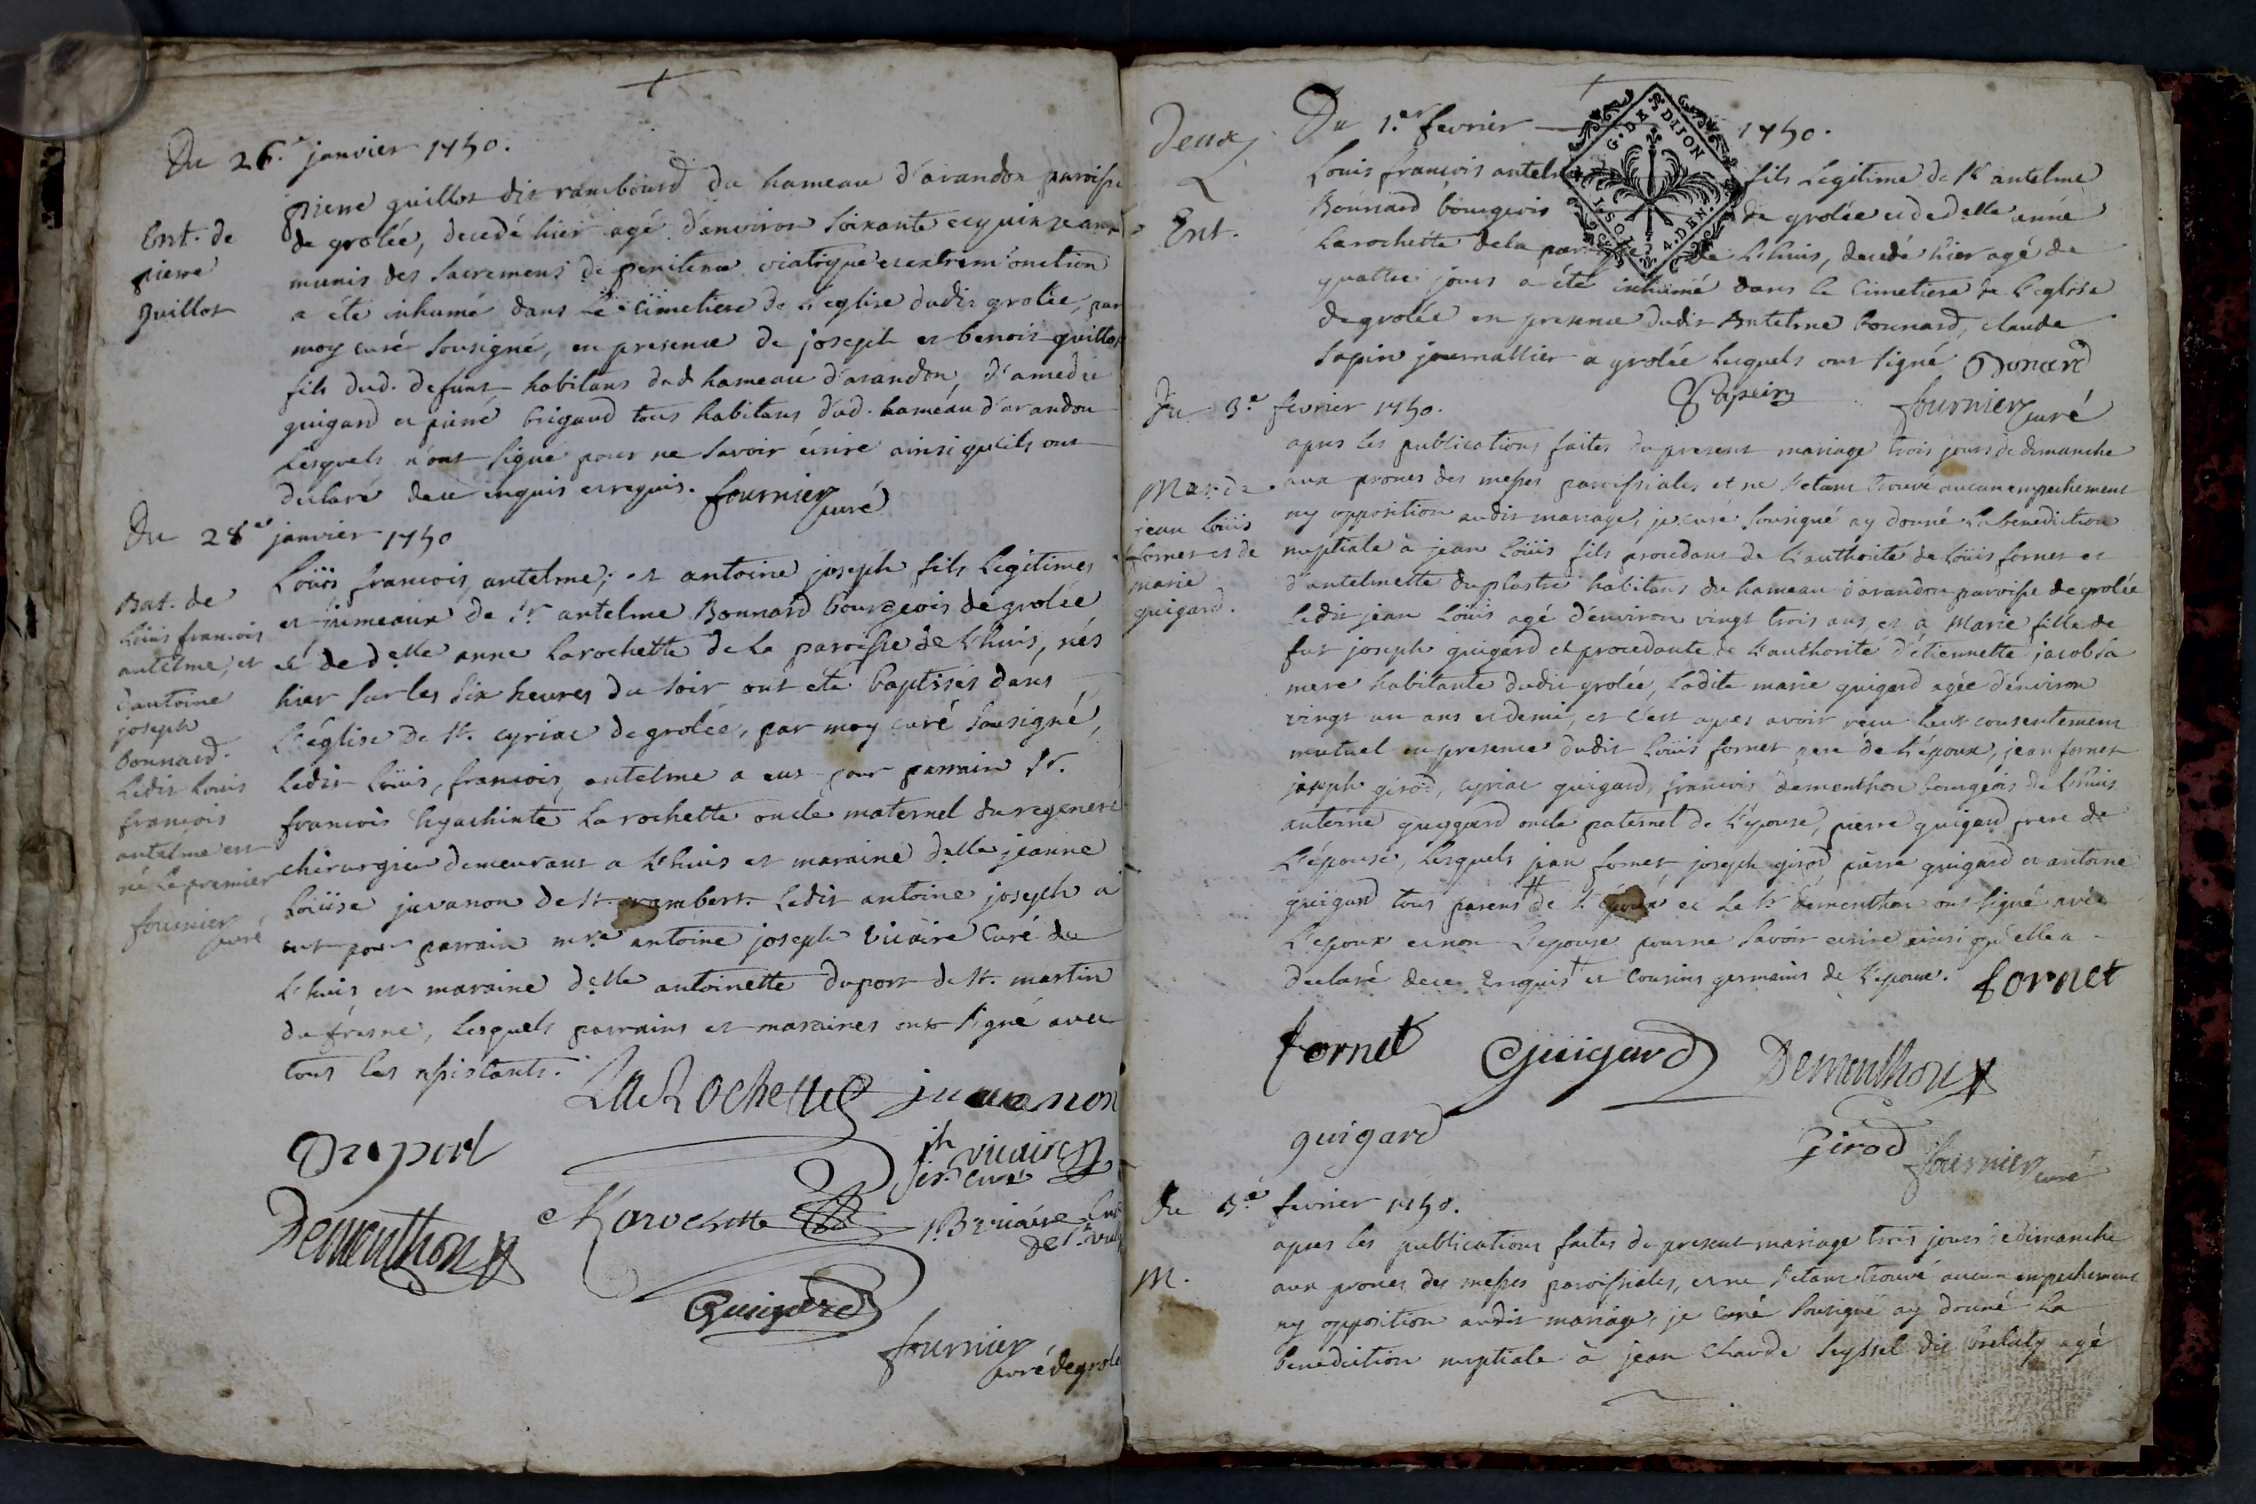 Du 26.e janvier 1750.
Ent. de
pierre
guillot
pierre guillot dit rambourd du hameau d'arandon paroisse
de grolée, decedé hier agé d'environ soixante et quinze ans
munis des sacremens de penitence viatique et extrem'onction
a été inhumé dans le cimetiere de l'eglise dudit grolée, par
moy curé sousigné, en presence de joseph et benoit guillot
fils dud. defunt habitans dud hameau d'arandon, d'amedée
guigard et pierre brigaud tous habitans dud. hameau d'arandon
lesquels n'ont signé pour ne savoir écrire ainsi qu'ils ont
declaré de ce enquis et requis. fournier curé
Du 28e janvier 1750
Bat. de
louis francois
antelme, et
d'antoine
joseph
bonnard.
ledit louis
francois
antelme est
né le premier
fournier
curé
Loüis francois, antelme, et antoine joseph fils legitimes
et jumeaux de sr. antelme Bonnard bourgeois de grolée
et de delle anne larochette de la paroisse de l'huis, nés
hier sur les six heures du soir ont eté baptisés dans
l'église de st. cyriac de grolée, par moy curé sousigné,
ledit loüis, francois, antelme a eut pour parrain sr.
francois hyachinte larochette oncle maternel du regeneré
chirurgien demeurant a l'huis et maraine delle jeanne
loüise juvanon de st. rambert. ledit antoine joseph a
eut pour parrain mre antoine joseph vicaire curé de
l'huis et maraine delle antoinette duport de st. martin
du fresne, lesquels parrains et maraines ont signé avec
tous les assistants.
LaRochette juvanon
Duport
jh vicaire
curé
Dementhon
Larochette
Guigard
fournier
curé de grolée
deux
Du 1.er fevrier 1750.
Ent.
Louis francois antelme fils legitime de sr antelme
Bonnard bourgeois de grolée et de delle anne
larochette de la paroisse de l'huis, decedé hier agé de
quattre jours a été inhumé dans le cimetiere de l'eglise
de grolée en presence dudit antelme bonnard, claude
sapin journallier a grolée lesquels ont signé Bonard
Sapin fournier curé
G. DE DIJON
Du 3.e fevrier 1750.
Mar. de
jean loüis
fornet et de
marie
guigard.
apres les publications faites du present mariage trois jours de dimanche
aux prones des messes paroissiales et ne s'etant trouvé aucun empechement
ny opposition audit mariage, je curé sousigné ay donné la benediction
nuptiale à jean loüis fils procedant de l'authorité de loüis fornet et
d'antelmette duplastre habitans du hameau d'arandon paroisse de grolée
ledit jean loüis agé d'environ vingt trois ans, et a marie fille de
fut joseph guigard et procedante de l'authorité d'étiennette jacob sa
mere habitante dudit grolée, ladite marie guigard agée d'environ
vingt un ans et demi, et c'est apres avoir reçu leur consentement
mutuel en presence dudit loüis fornet pere de l'époux, jean fornet
joseph girod, cyriac guigard, francois dementhon bourgeois de l'huis
antoine guigard oncle paternel de l'épouse, pierre guigard frere de
l'épouse, lesquels jean fornet, joseph girod, pierre guigard et antoine
guigard tous parens de l'époux et le sr dementhon ont signé avec
l'epoux et non l'epouse pour ne savoir ecrire ainsi qu'elle a
declaré de ce enquis et cousins germains de l'epoux. fornet
fornet Guigard Dementhon
guigard girod fournier curé
Du 3.e fevrier 1750.
M.
apres les publications faites du present mariage trois jours de dimanche
aux prones des messes paroissiales, et ne s'etant trouvé aucun empechement
ny opposition audit mariage, je curé sousigné ay donné la
benediction nuptiale à jean claude seyssel dit agé